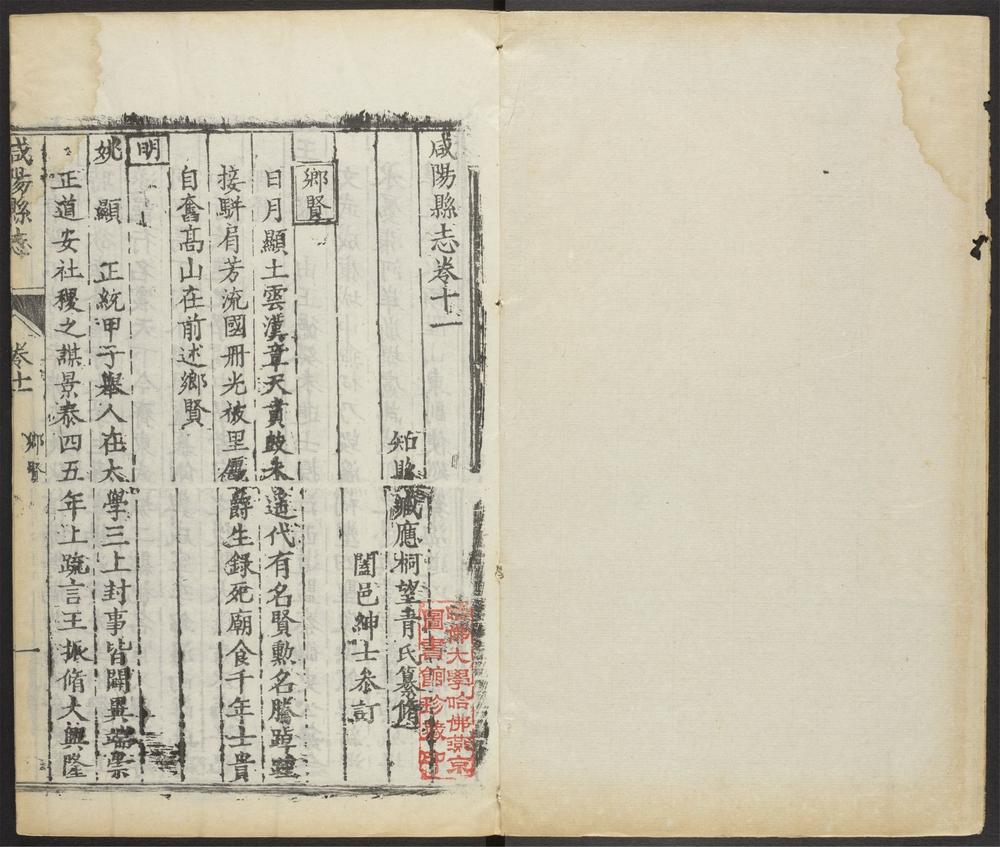 咸陽縣志卷十一
知縣臧應桐望青氏纂脩
闔邑紳士叅訂
鄉賢
日月顯土雲漢章天貴豉未遥代有名賢勲名騰踔踵
接駢肩芳流國冊光被里㕓爵生錄死廟食千年士貴
自奮髙山在前述鄉賢
明
姚顯 正統甲子舉人在太學三上封事皆闢異端崇
正道安社稷之謀景泰四五年上䟽言王振脩大興隆
咸陽縣志 卷十一 鄉賢 一
哈佛大學哈佛燕京
圖書館珍藏印